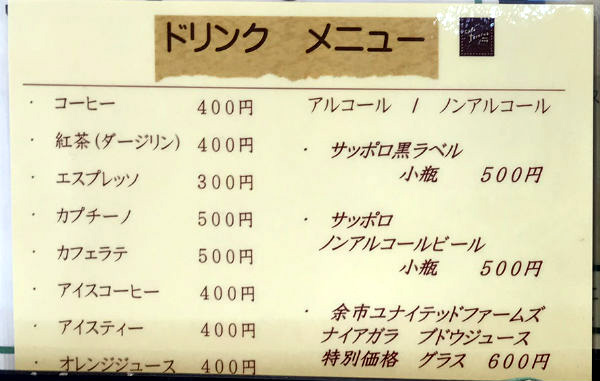 ドリンク　メニュー
・ コーヒー 400円
・ 紅茶(ダージリン) 400円
・ エスプレッソ 300円
・ カプチーノ 500円
・ カフェラテ 500円
・ アイスコーヒー 400円
・ アイスティー 400円
・ オレンジジュース 400円
アルコール / ノンアルコール
・ サッポロ黒ラベル
小瓶 500円
・ サッポロ
ノンアルコールビール
小瓶 500円
・ 余市ユナイテッドファームズ
ナイアガラ ブドウジュース
特別価格 グラス 600円